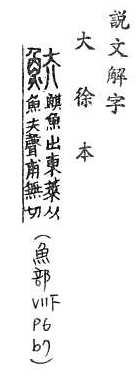 説文解字
大徐本
鯕魚出東萊从
魚夫聲甫無切
(魚部VII下P6b7)